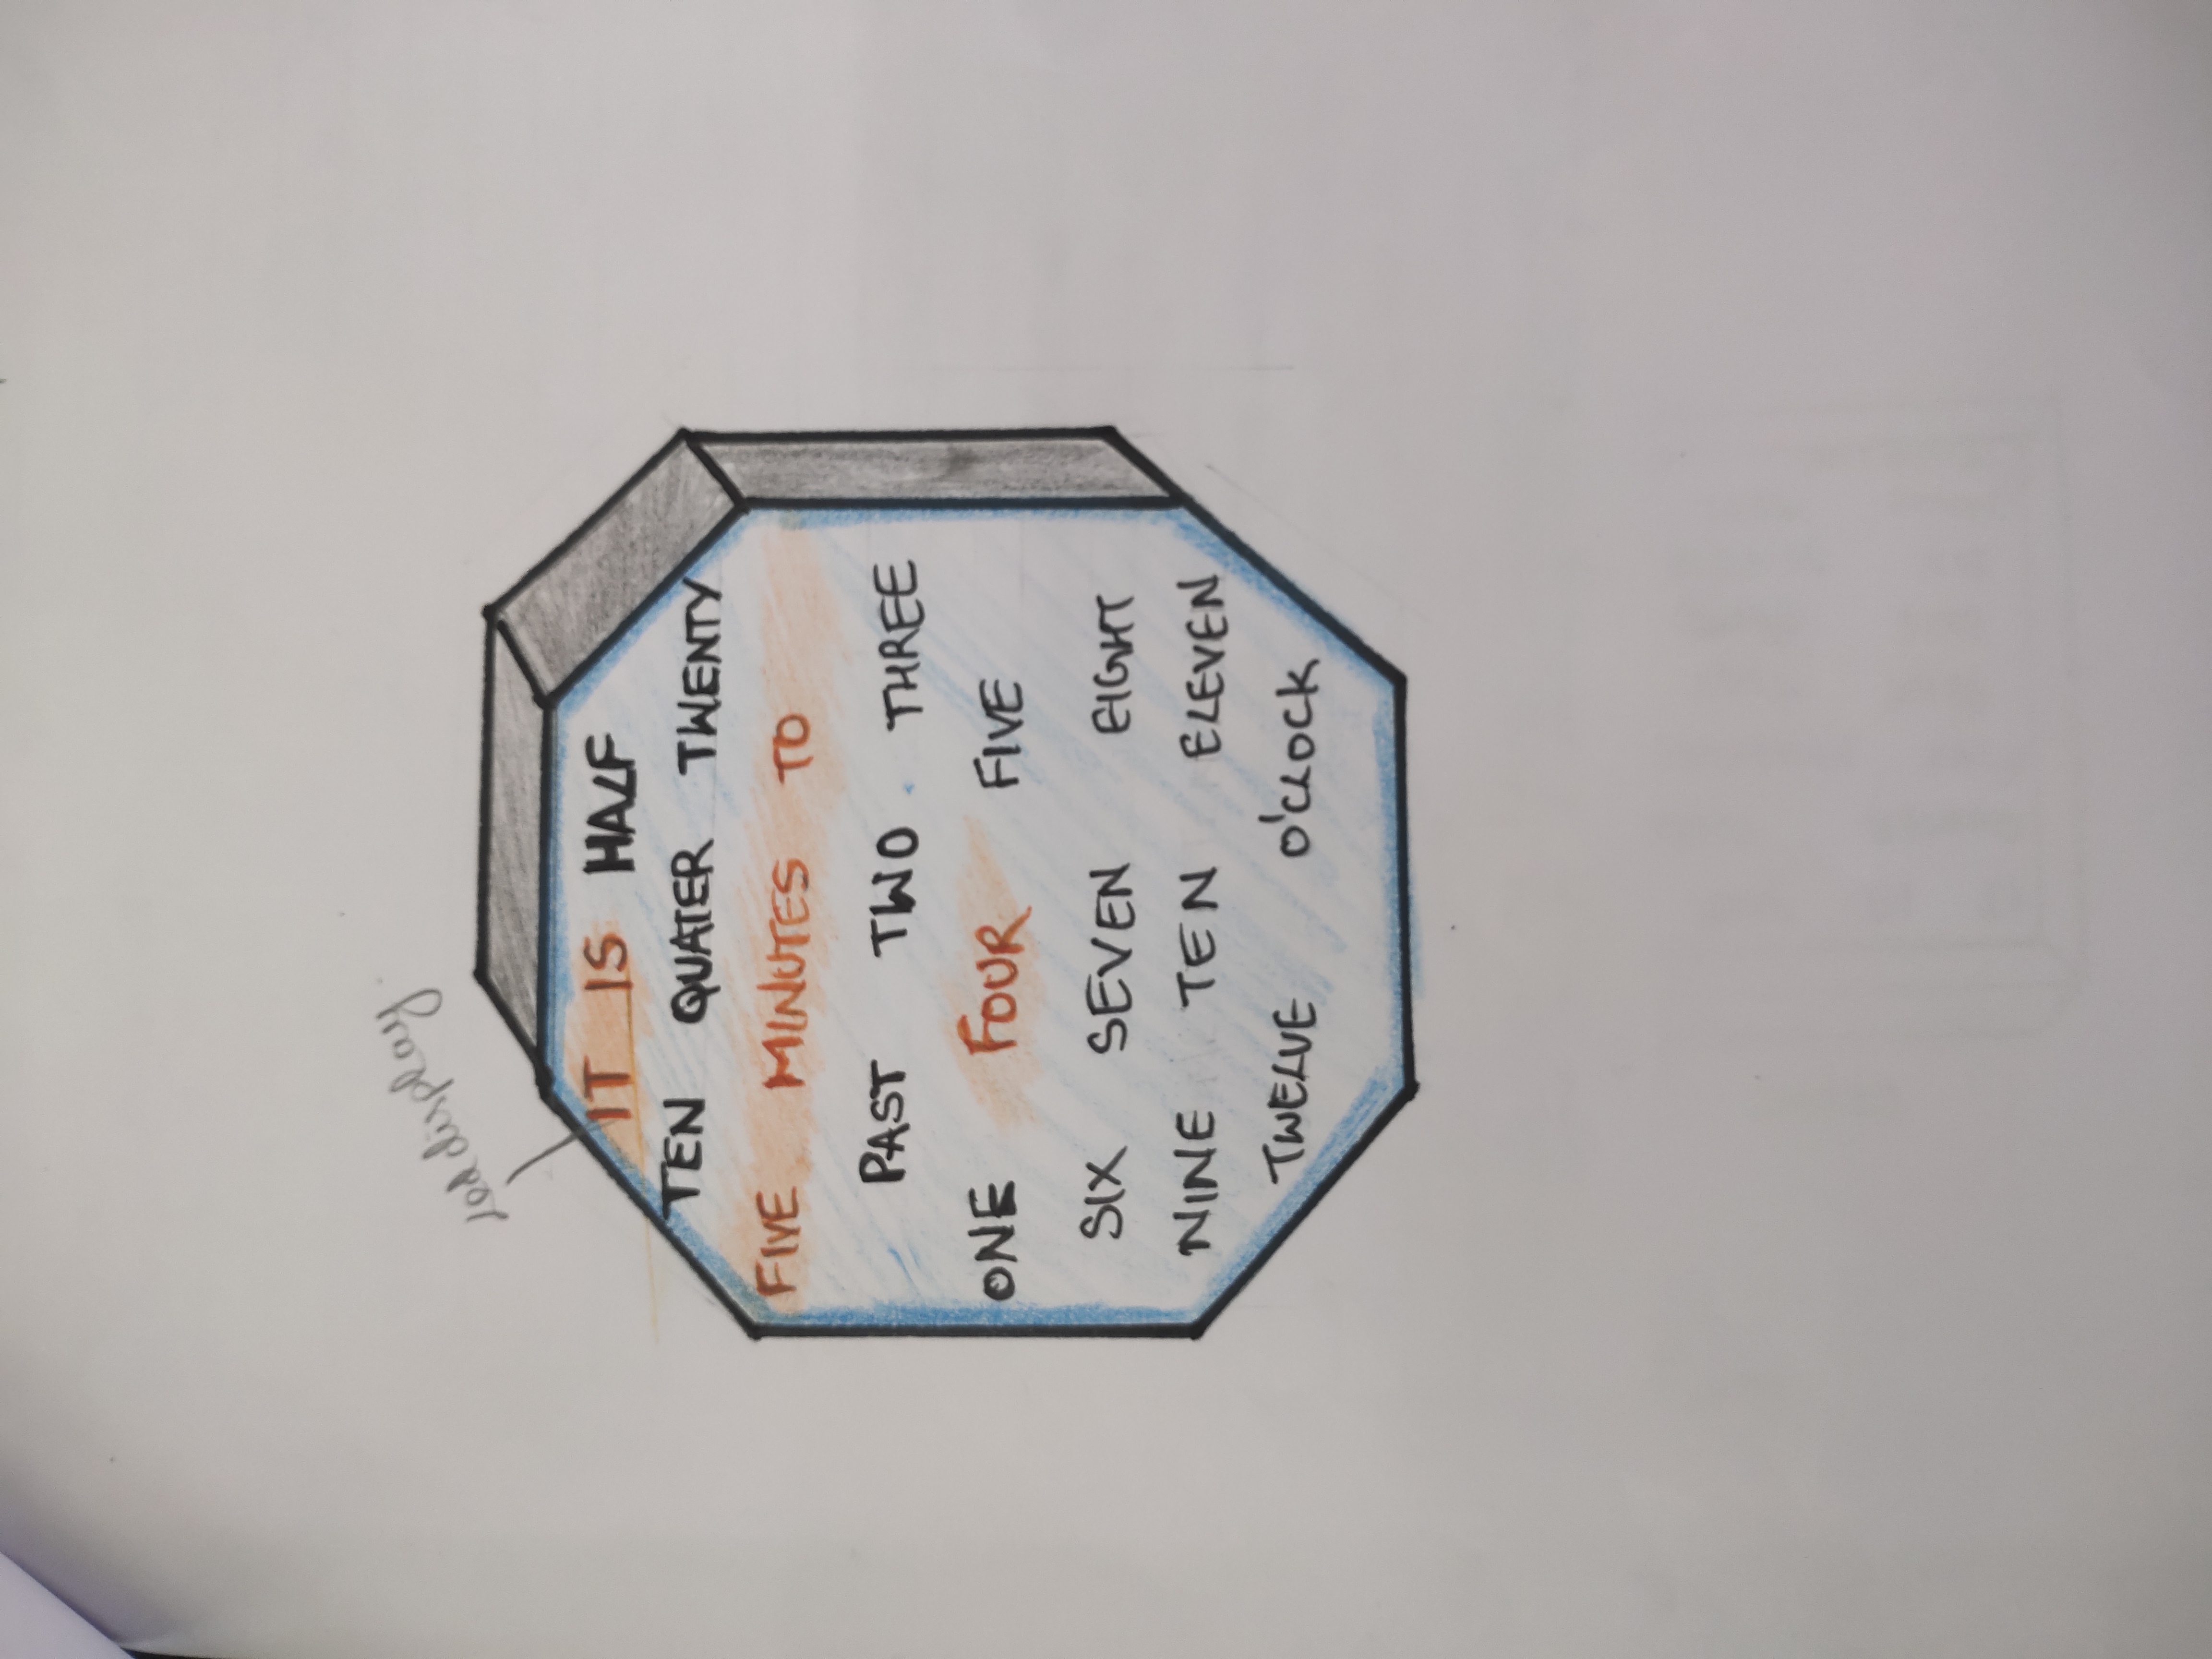 Led display.
IT IS HALF
TEN QUATER TWENTY
FIVE MINUTES TO
PAST TWO THREE
ONE FOUR FIVE
SIX SEVEN EIGHT
NINE TEN ELEVEN
TWELVE O'CLOCK